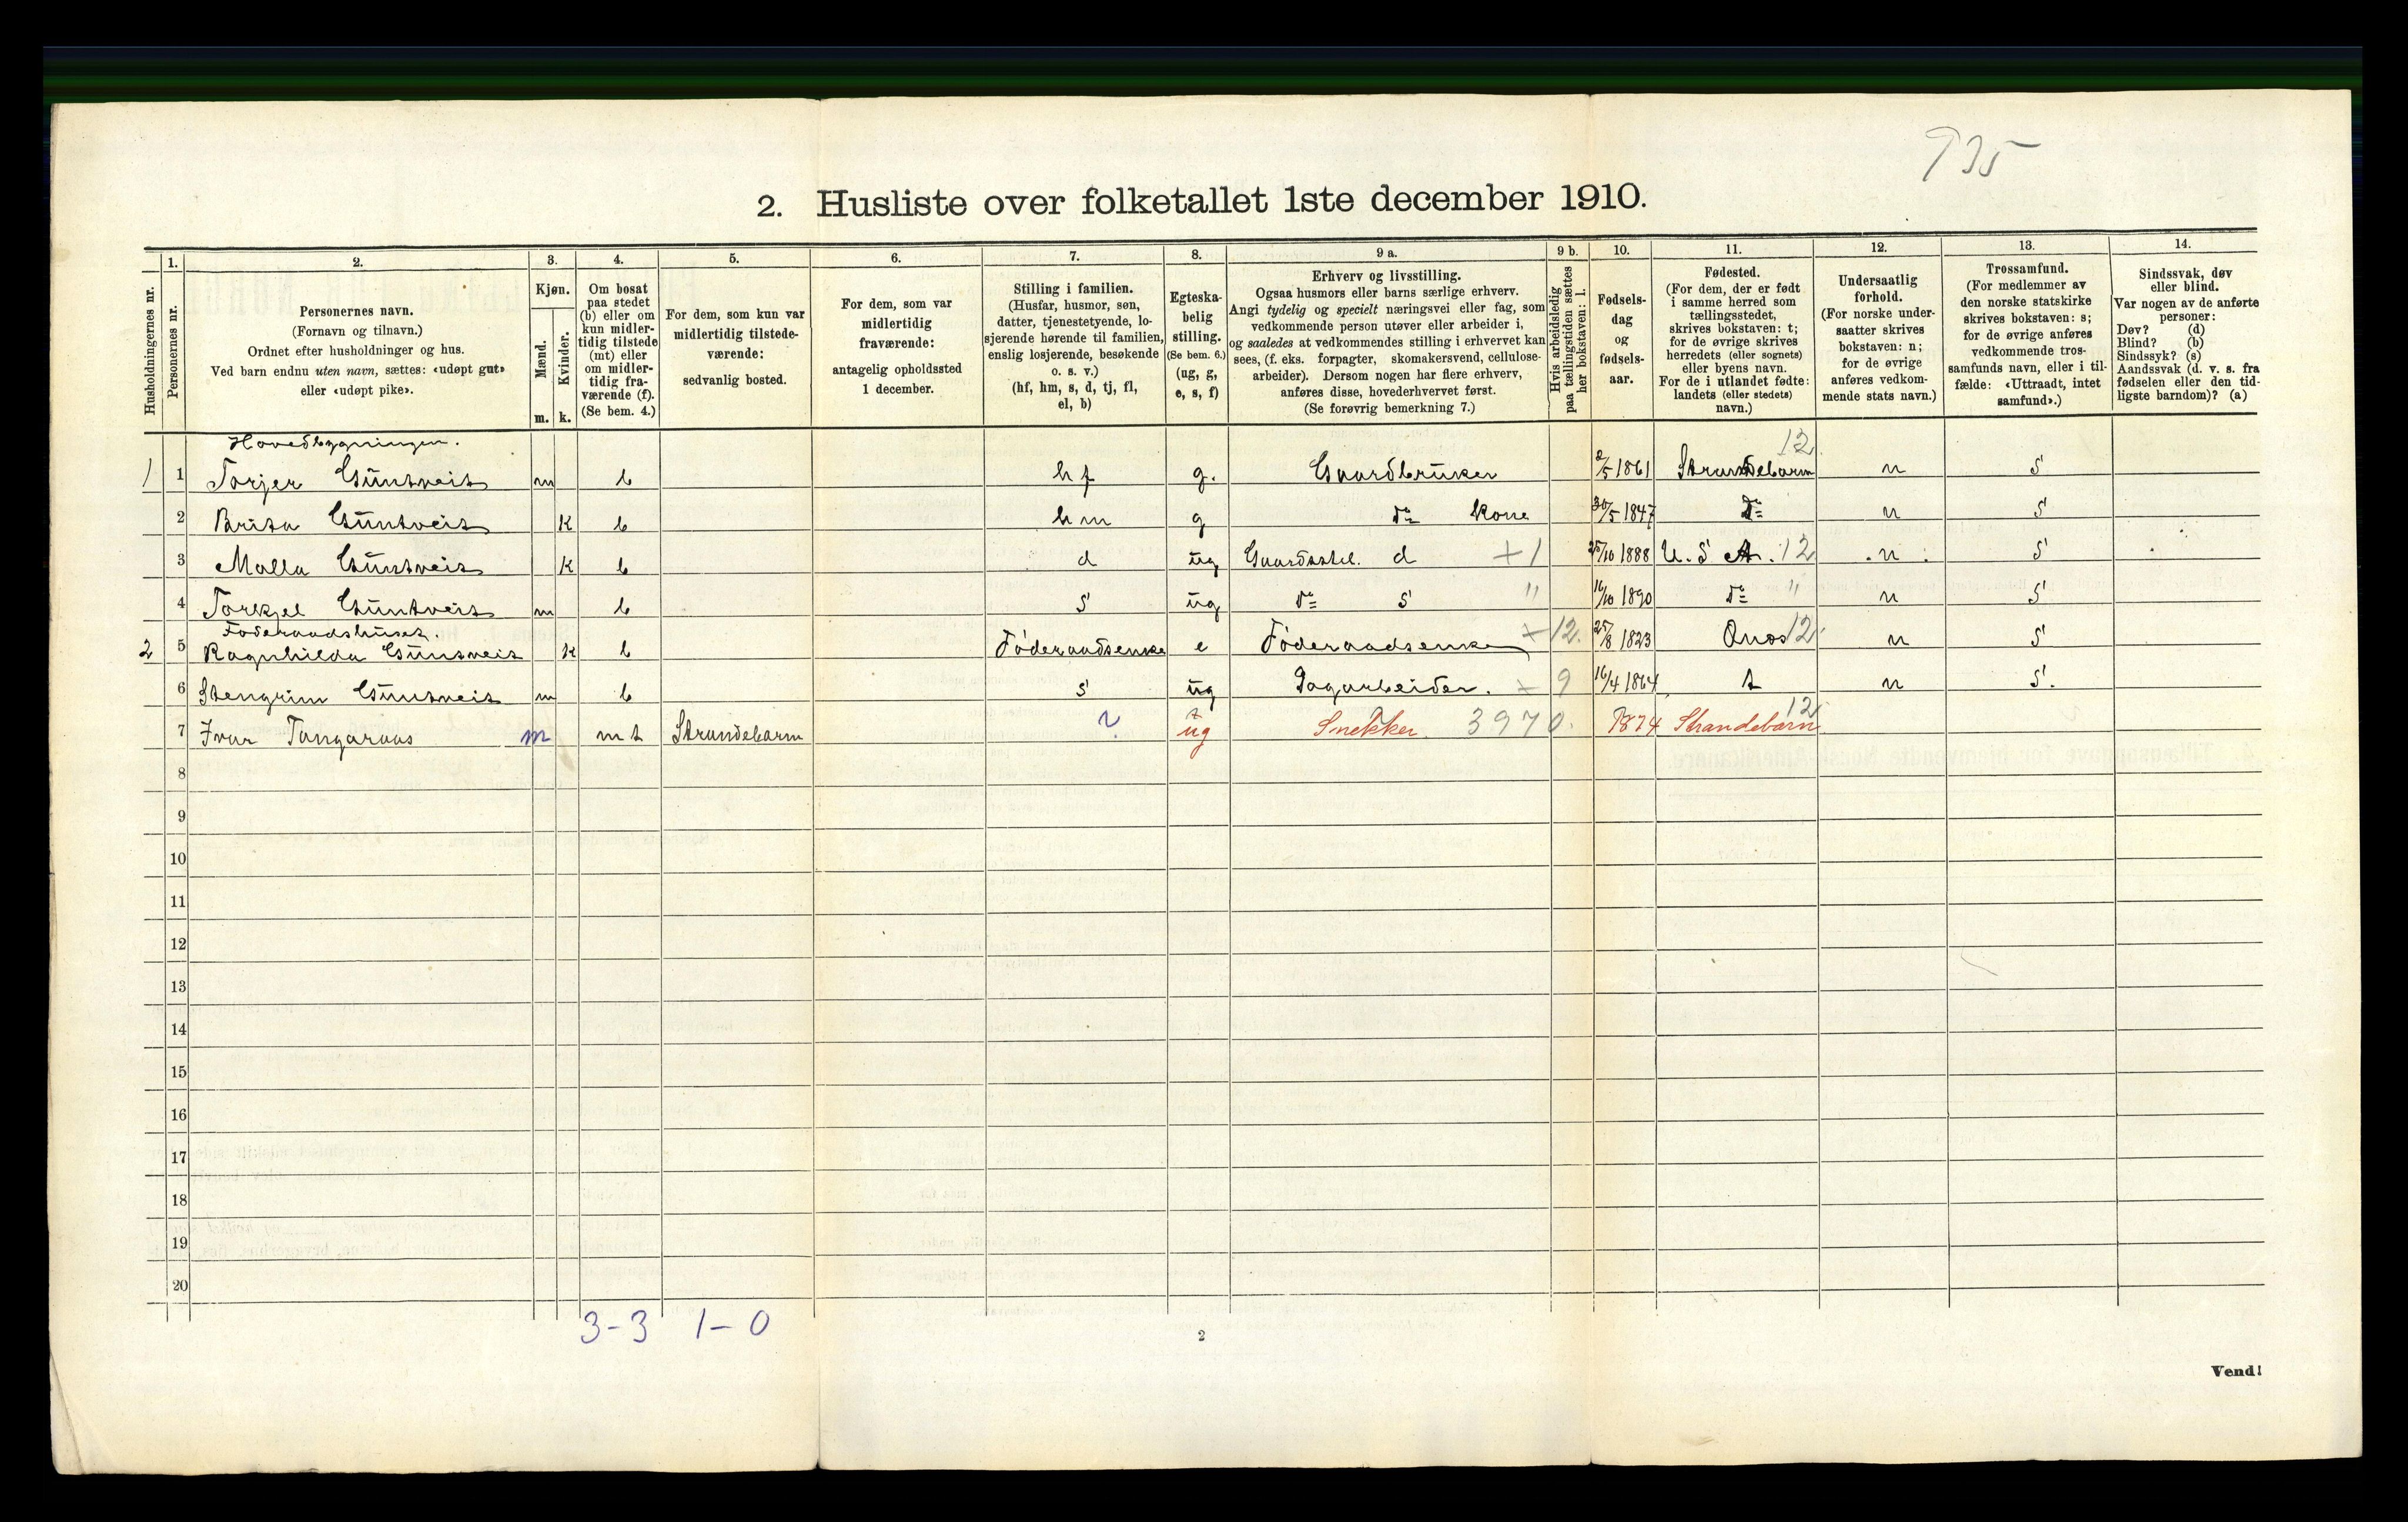 T 35
2. Husliste over folketallet 1ste december 1910.
Husholdningernes nr.
1. Personernes nr.
2. Personernes navn.
(Fornavn og tilnavn.)
Ordnet efter husholdninger og hus.
Ved barn endnu uten navn, sættes: «udøpt gut»
eller «udøpt pike».
3. Kjøn.
Mænd. m.
Kvinder. k.
4. Om bosat
paa stedet
(b) eller om
kun midler-
tidig tilstede
(mt) eller
om midler-
tidig fra-
værende (f).
(Se bem. 4.)
5. For dem, som kun var
midlertidig tilstede-
værende:
sedvanlig bosted.
6. For dem, som var
midlertidig
fraværende:
antagelig opholdssted
1 december.
7. Stilling i familien.
(Husfar, husmor, søn,
datter, tjenestetyende, lo-
sjerende hørende til familien,
enslig losjerende, besøkende
o. s. v.)
(hf, hm, s, d, tj, fl,
el, b)
8. Egteska-
belig
stilling.
(Se bem. 6.)
(ug, g,
e, s, f)
9 a. Erhverv og livsstilling.
Ogsaa husmors eller barns særlige erhverv.
Angi tydelig og specielt næringsvei eller fag, som
vedkommende person utøver eller arbeider i,
og saaledes at vedkommendes stilling i erhvervet kan
sees, (f. eks. forpagter, skomakersvend, cellulose-
arbeider). Dersom nogen har flere erhverv,
anføres disse, hovederhvervet først.
(Se forøvrig bemerkning 7.)
9 b. Hvis arbeidsledig
paa tællingstiden sættes
her bokstaven: l.
10. Fødsels-
dag
og
fødsels-
aar.
11. Fødested.
(For dem, der er født
i samme herred som
tællingsstedet,
skrives bokstaven: t;
for de øvrige skrives
herredets (eller sognets)
eller byens navn.
For de i utlandet fødte:
landets (eller stedets)
navn.)
12. Undersaatlig
forhold.
(For norske under-
saatter skrives
bokstaven: n;
for de øvrige
anføres vedkom-
mende stats navn.)
13. Trossamfund.
(For medlemmer av
den norske statskirke
skrives bokstaven: s;
for de øvrige anføres
vedkommende tros-
samfunds navn, eller i til-
fælde: «Uttraadt, intet
samfund».)
14. Sindssvak, døv
eller blind.
Var nogen av de anførte
personer:
Døv? (d)
Blind? (b)
Sindssyk? (s)
Aandssvak (d. v. s. fra
fødselen eller den tid-
ligste barndom)? (a)
Hovedbygningen. 12
1 1 Torjer Guntveit m b hf g. Gaardbruker 2/5 1861 Strandebarm n s
2 Brita Guntveit k b hm g do kone 30/5 1847 do n s
3 Malla Guntveit k b d ug Gaardsstel. d + 1 25/10 1888 U. S A. 12 n s
4 Torkjel Guntveit m b s ug do s " 16/10 1890 do " n s
Føderaadshuset.
2 5 Ragnhilda Guntveit k b Føderaadsenke e Føderaadsenke + 12. 25/8 1823 12 n s
6 Stengrim Guntveit m b s ug Dagarbeider. + 9 16/4 1864 t n s.
7 Ivar Tangeraas m mt Strandebarm ? ug Snekker 3970. 1874 Strandebarm 12
8
9
10
11
12
13
14
15
16
17
18
19
20
3-3 1-0
2
Vend!